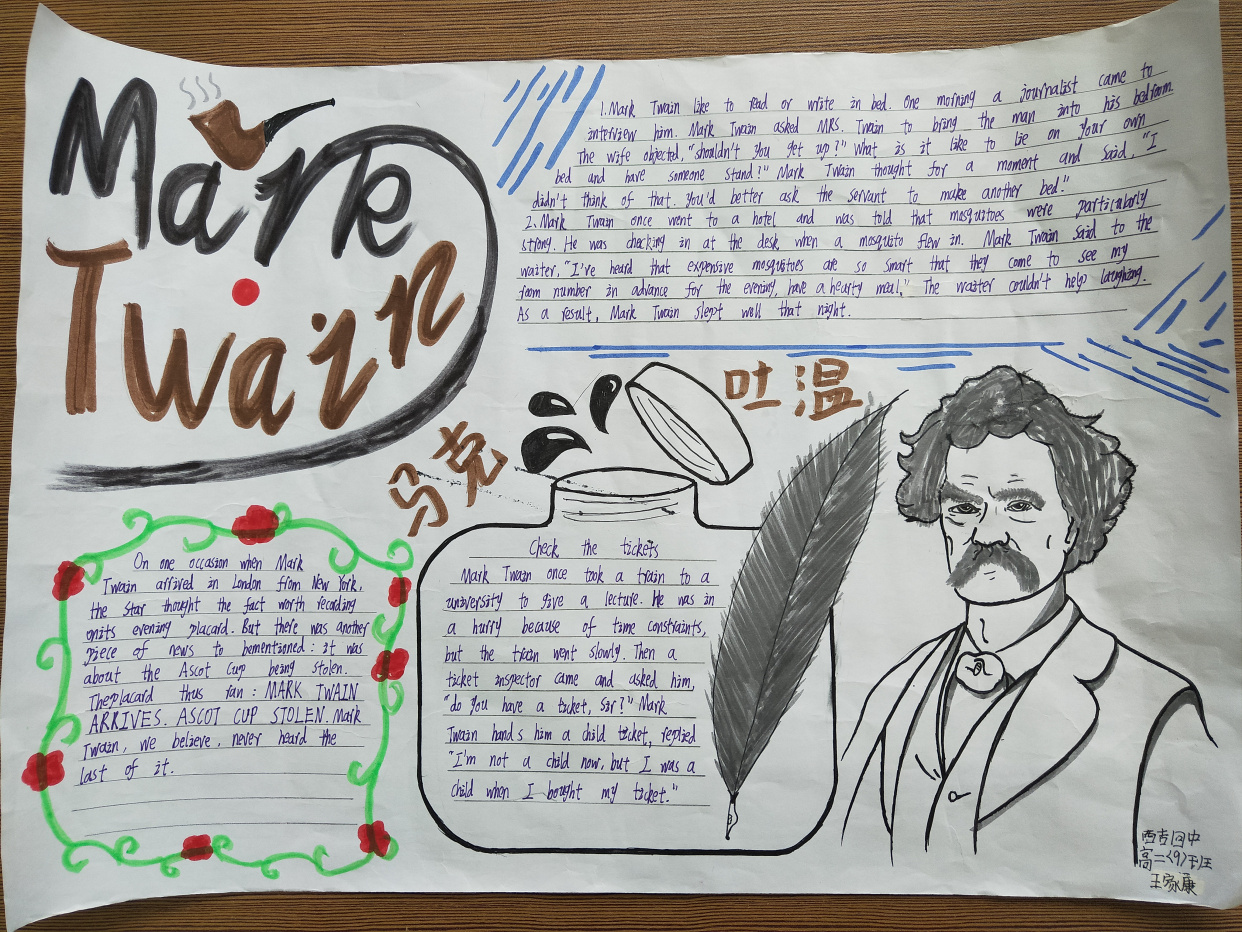 Mark
Twain
1. Mark Twain like to read or write in bed. One morning a journalist came to
interview him. Mark Twain asked MRS. Twain to bring the man into his bedroom.
The wife objected, "shouldn't you get up?" What is it like to lie on your own
bed and have someone stand!" Mark Twain thought for a moment and said, "I
didn't think of that. You'd better ask the servant to make another bed."
2. Mark Twain once went to a hotel and was told that mosquitoes were particularly
strong. He was checking in at the desk when a mosquito flew in. Mark Twain said to the
waiter, "I've heard that expensive mosquitoes are so smart that they come to see my
room number in advance for the evening, have a hearty meal." The waiter couldn't help laughing.
As a result, Mark Twain slept well that night.
马克
吐温
On one occasion when Mark
Twain arrived in London from New York,
the star thought the fact worth recording
onits evening placard. But there was another
piece of news to bementioned: it was
about the Ascot Cup being stolen.
Theplacard thus ran: MARK TWAIN
ARRIVES. ASCOT CUP STOLEN. Mark
Twain, we believe, never heard the
last of it.
Check the tickets
Mark Twain once took a train to a
university to give a lecture. He was in
a hurry because of time constraints,
but the train went slowly. Then a
ticket inspector came and asked him,
"do you have a ticket, sir?" Mark
Twain hands him a child ticket, replied
"I'm not a child now, but I was a
child when I bought my ticket."
西吉回中
高二(9)班
王家康